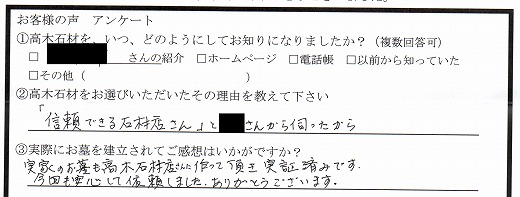 お客様の声　アンケート
①高木石材を、いつ、どのようにしてお知りになりましたか？（複数回答可）
□　　　　さんの紹介　□ホームページ　□電話帳　□以前から知っていた
□その他（　　　　　　　　　　）
②高木石材をお選びいただいたその理由を教えて下さい
「信頼できる石材店さん」と　　さんから伺ったから
③実際にお墓を建立されてご感想はいかがですか？
実家のお墓も高木石材さんに作って頂き実証済みです.
今回も安心して依頼しました.ありがとうございます.